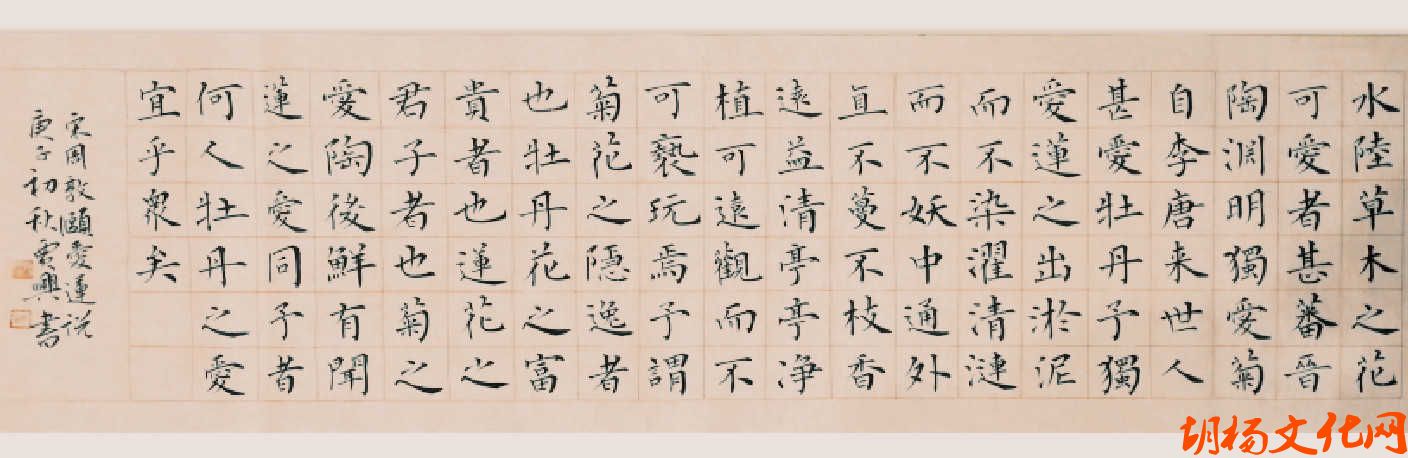 水陸草木之花
可愛者甚蕃晉
陶淵明獨愛菊
自李唐来世人
甚愛牡丹予獨
愛蓮之出淤泥
而不染濯清漣
而不妖中通外
直不蔓不枝香
遠益清亭亭净
植可遠觀而不
可褻玩焉予謂
菊花之隱逸者
也牡丹花之富
貴者也蓮花之
君子者也菊之
愛陶後鮮有聞
蓮之愛同予者
何人牡丹之愛
宜乎衆矣
宋周敦頤愛連说
庚子初秋雲興書
胡杨文化网